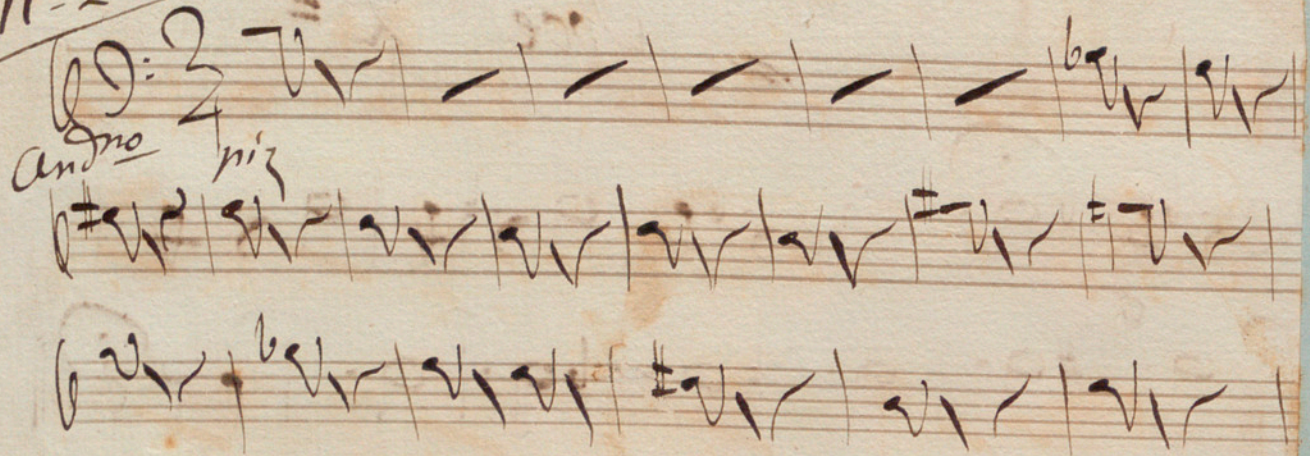 2/4
Andno piz